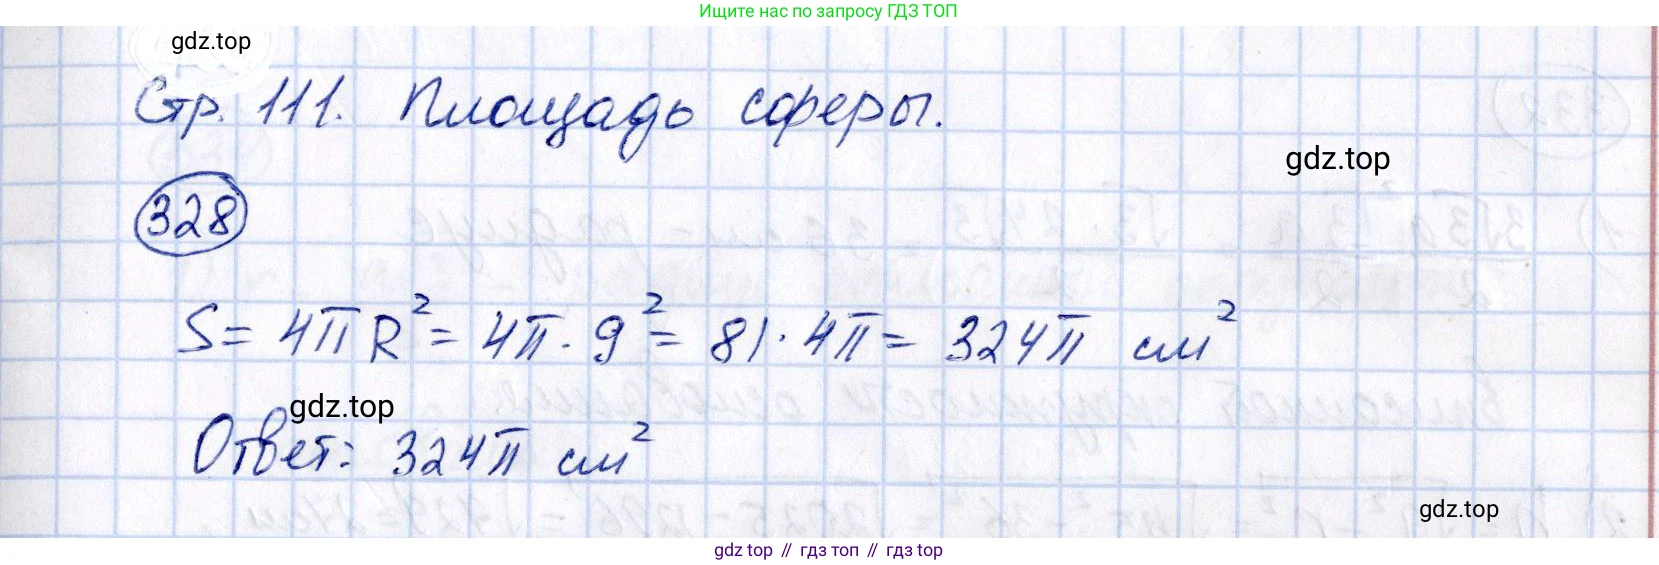 Ищите нас по запросу ГДЗ ТОП
gdz.top
Стр. 111. Площадь сферы.
gdz.top
328
S = 4π R² = 4π · 9² = 81 · 4π = 324π см²
gdz.top
Ответ: 324π см²
gdz.top
gdz top // гдз топ // gdz top